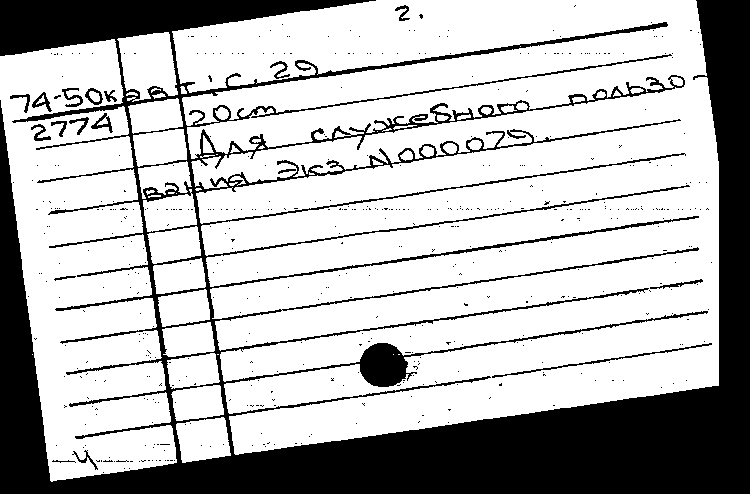 2.
74-50к авт; с. 29
2774 20cm.
Для служебного пользо-
вания. Экз. N000079.
ч